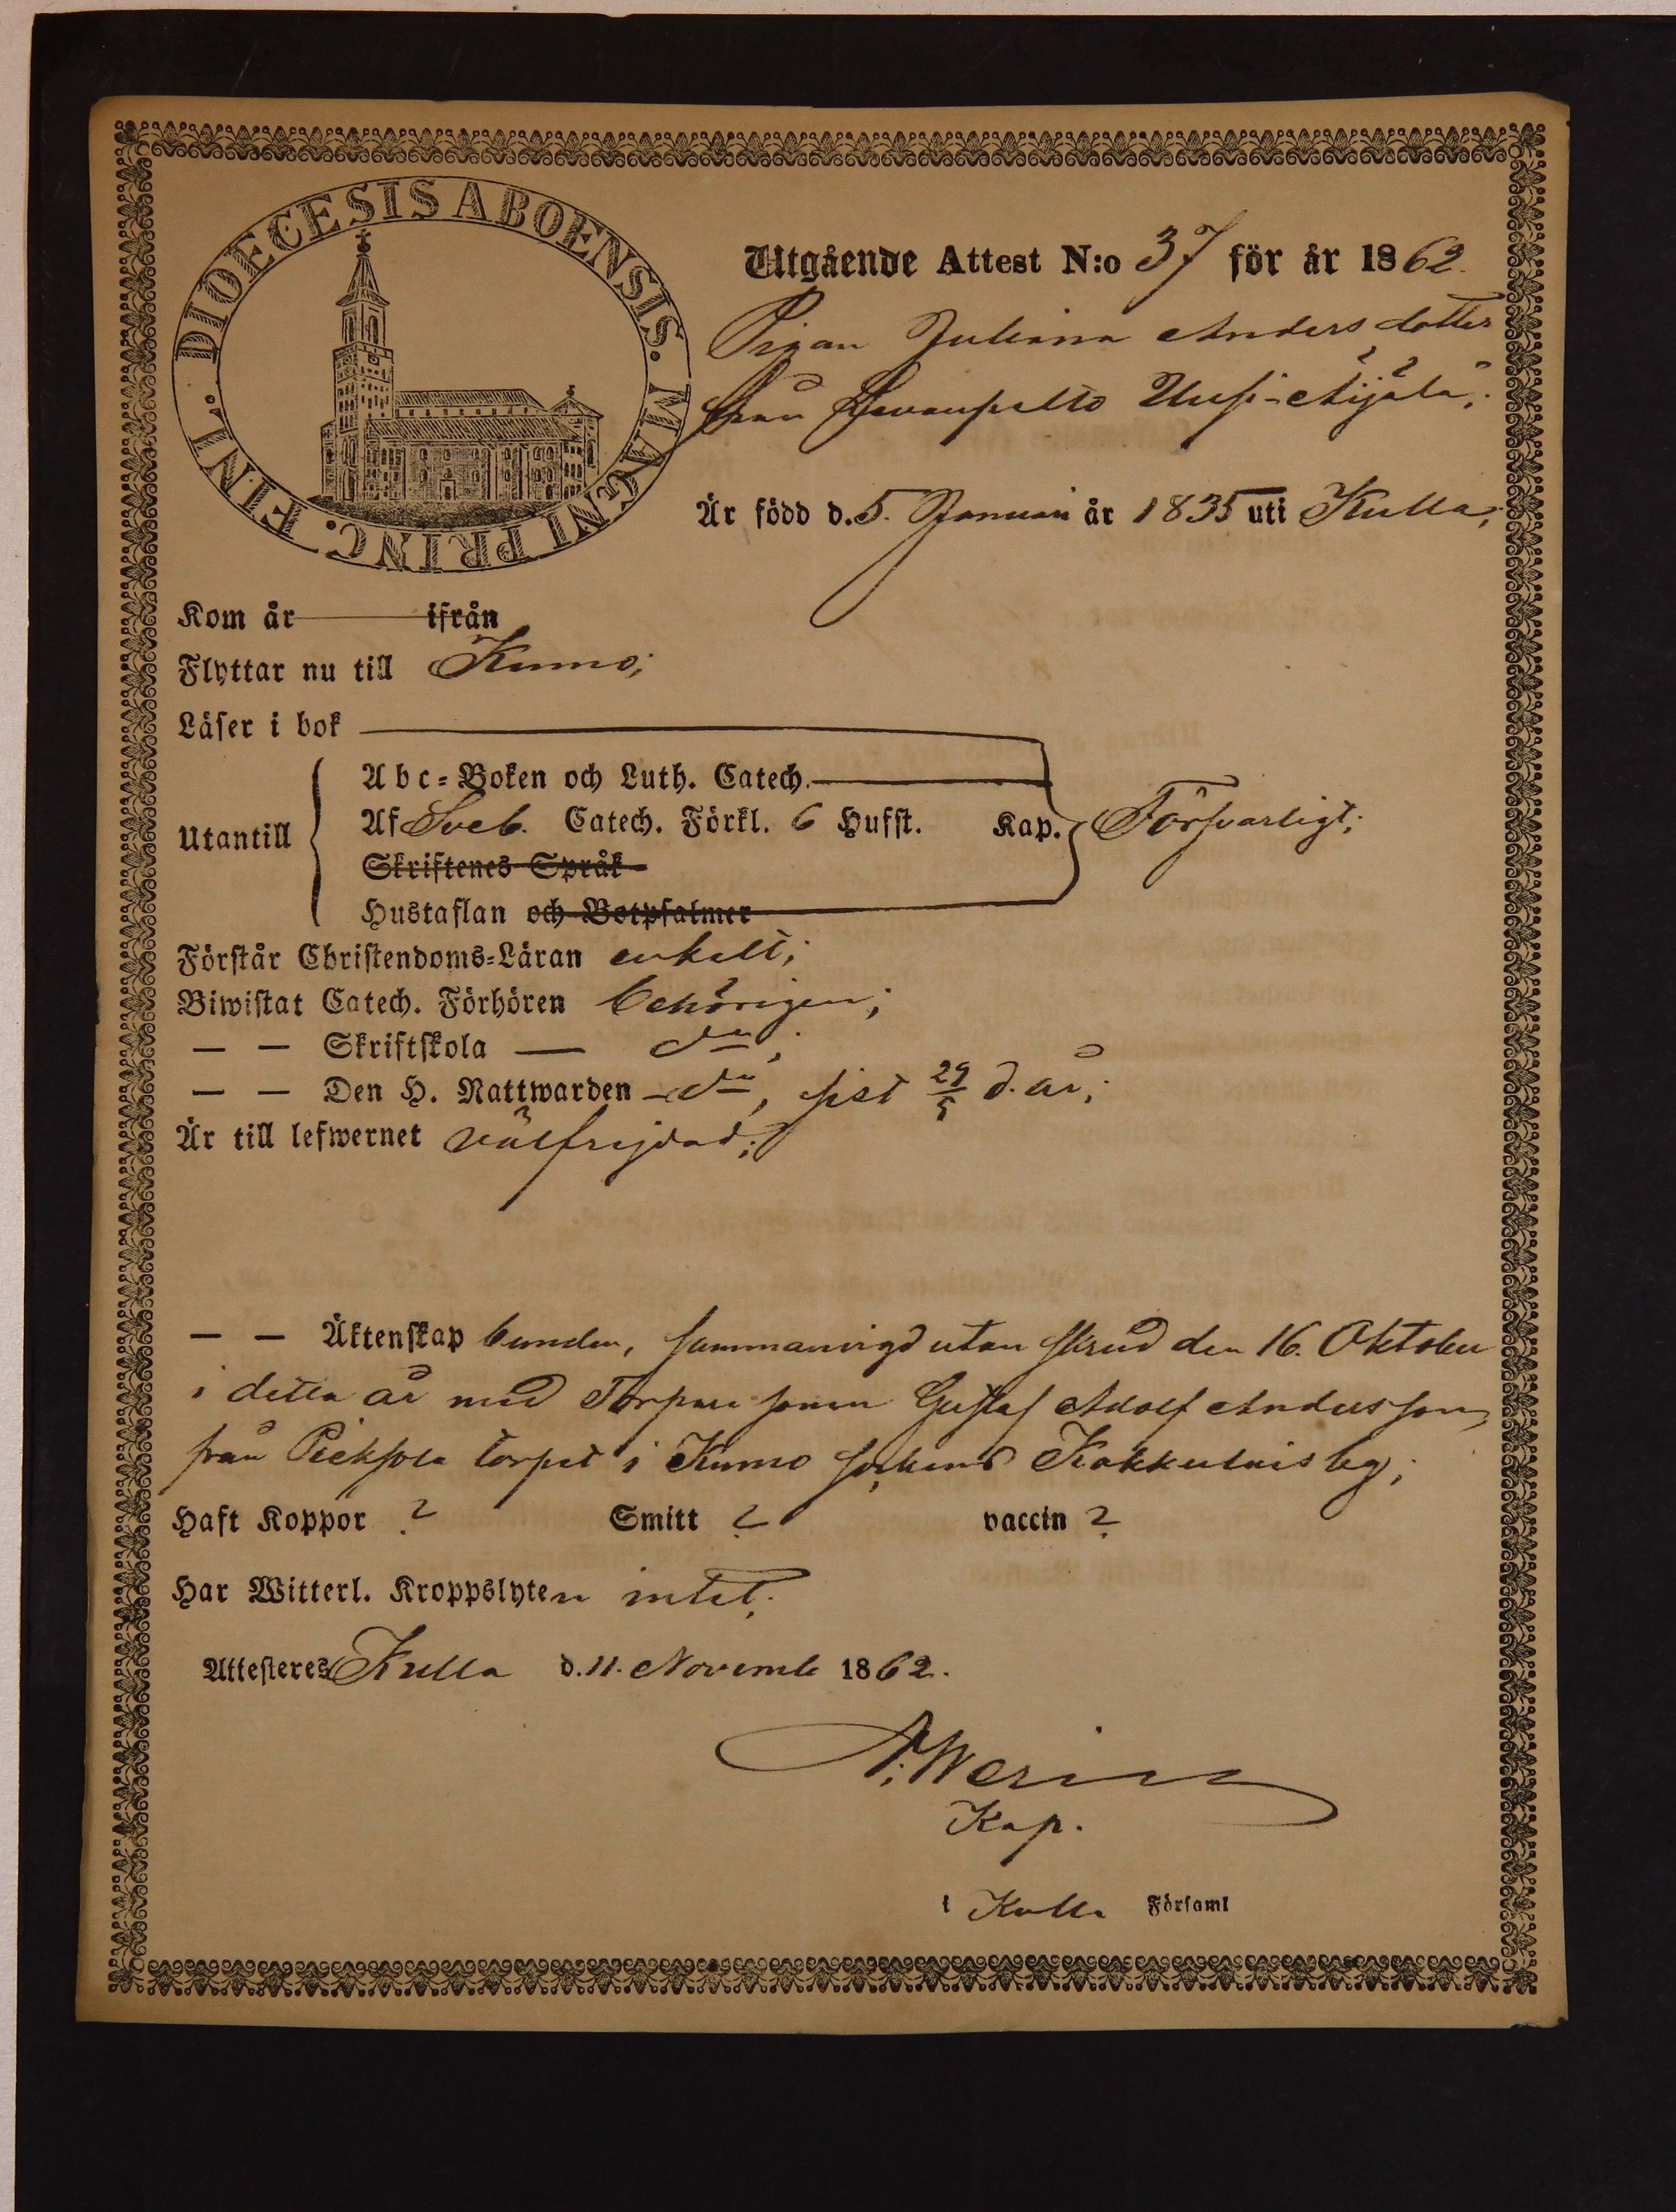 DIOECESIS ABOENSIS. MAGNI PRINC. FINL.
Utgående Attest N:o 37 för år 1862.
Pigan Juliana Andersdotter
från Uusi-Äijälä;
Är född d. 5. Januari år 1835 uti Kulla;
Kom år ifrån
Flyttar nu till Kumo;
Läser i bok
Utantill
Abc-Boken och Luth. Catech.
Af Sveb. Catech. Förkl. 6 Hufst. Kap. Försvarligt;
Skriftenes Språk
Hustaflan och Botpsalmer
Förstår Christendoms-Läran enkelt;
Biwistat Catech. Förhören behörigen;
— — Skriftskola — do;
— — Den H. Nattwarden do, sist 29/5 d. år;
Är till lefwernet välfrejdad;
— — Äktenskap bunden, sammanvigd utan skrud den 16. Oktober
i detta år med Torpare sonen Gustaf Adolf Andersson
från torpet i Kumo sockens Kakkulais by;
Haft Koppor ? Smitt ? vaccin ?
Har Witterl. Kroppslyten intet;
Attesteres Kulla d. 11. Novemb 1862.
Kap.
i Kulla Församl